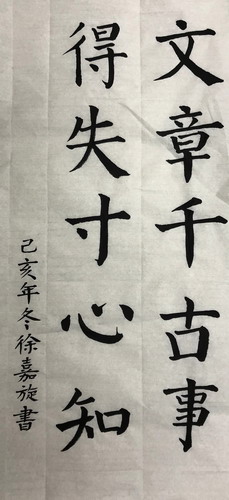 文章千古事
得失寸心知
己亥年冬徐嘉旋書